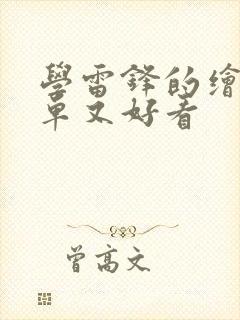 學雷鋒的繪
單又好看
曾高文